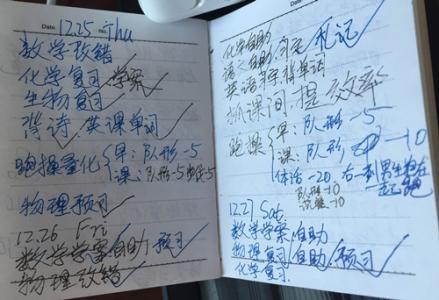 Date
12.25 Thu
数学改错
化学复习 学案
生物复习
背诗、英课单词
跑操量化 早：队形-5
课：队形-5
物理预习
12.26 Fri
数学学案自助 预习
物理改错
Date
化学自助
语文自助 札记
英语 单词
抓课间，提效率
跑操 早：队形-5
课：队形 -10
体活-20
队形-10
-10
12.27 Sat.
数学学案自助
物理复习 自助 预习
化学复习